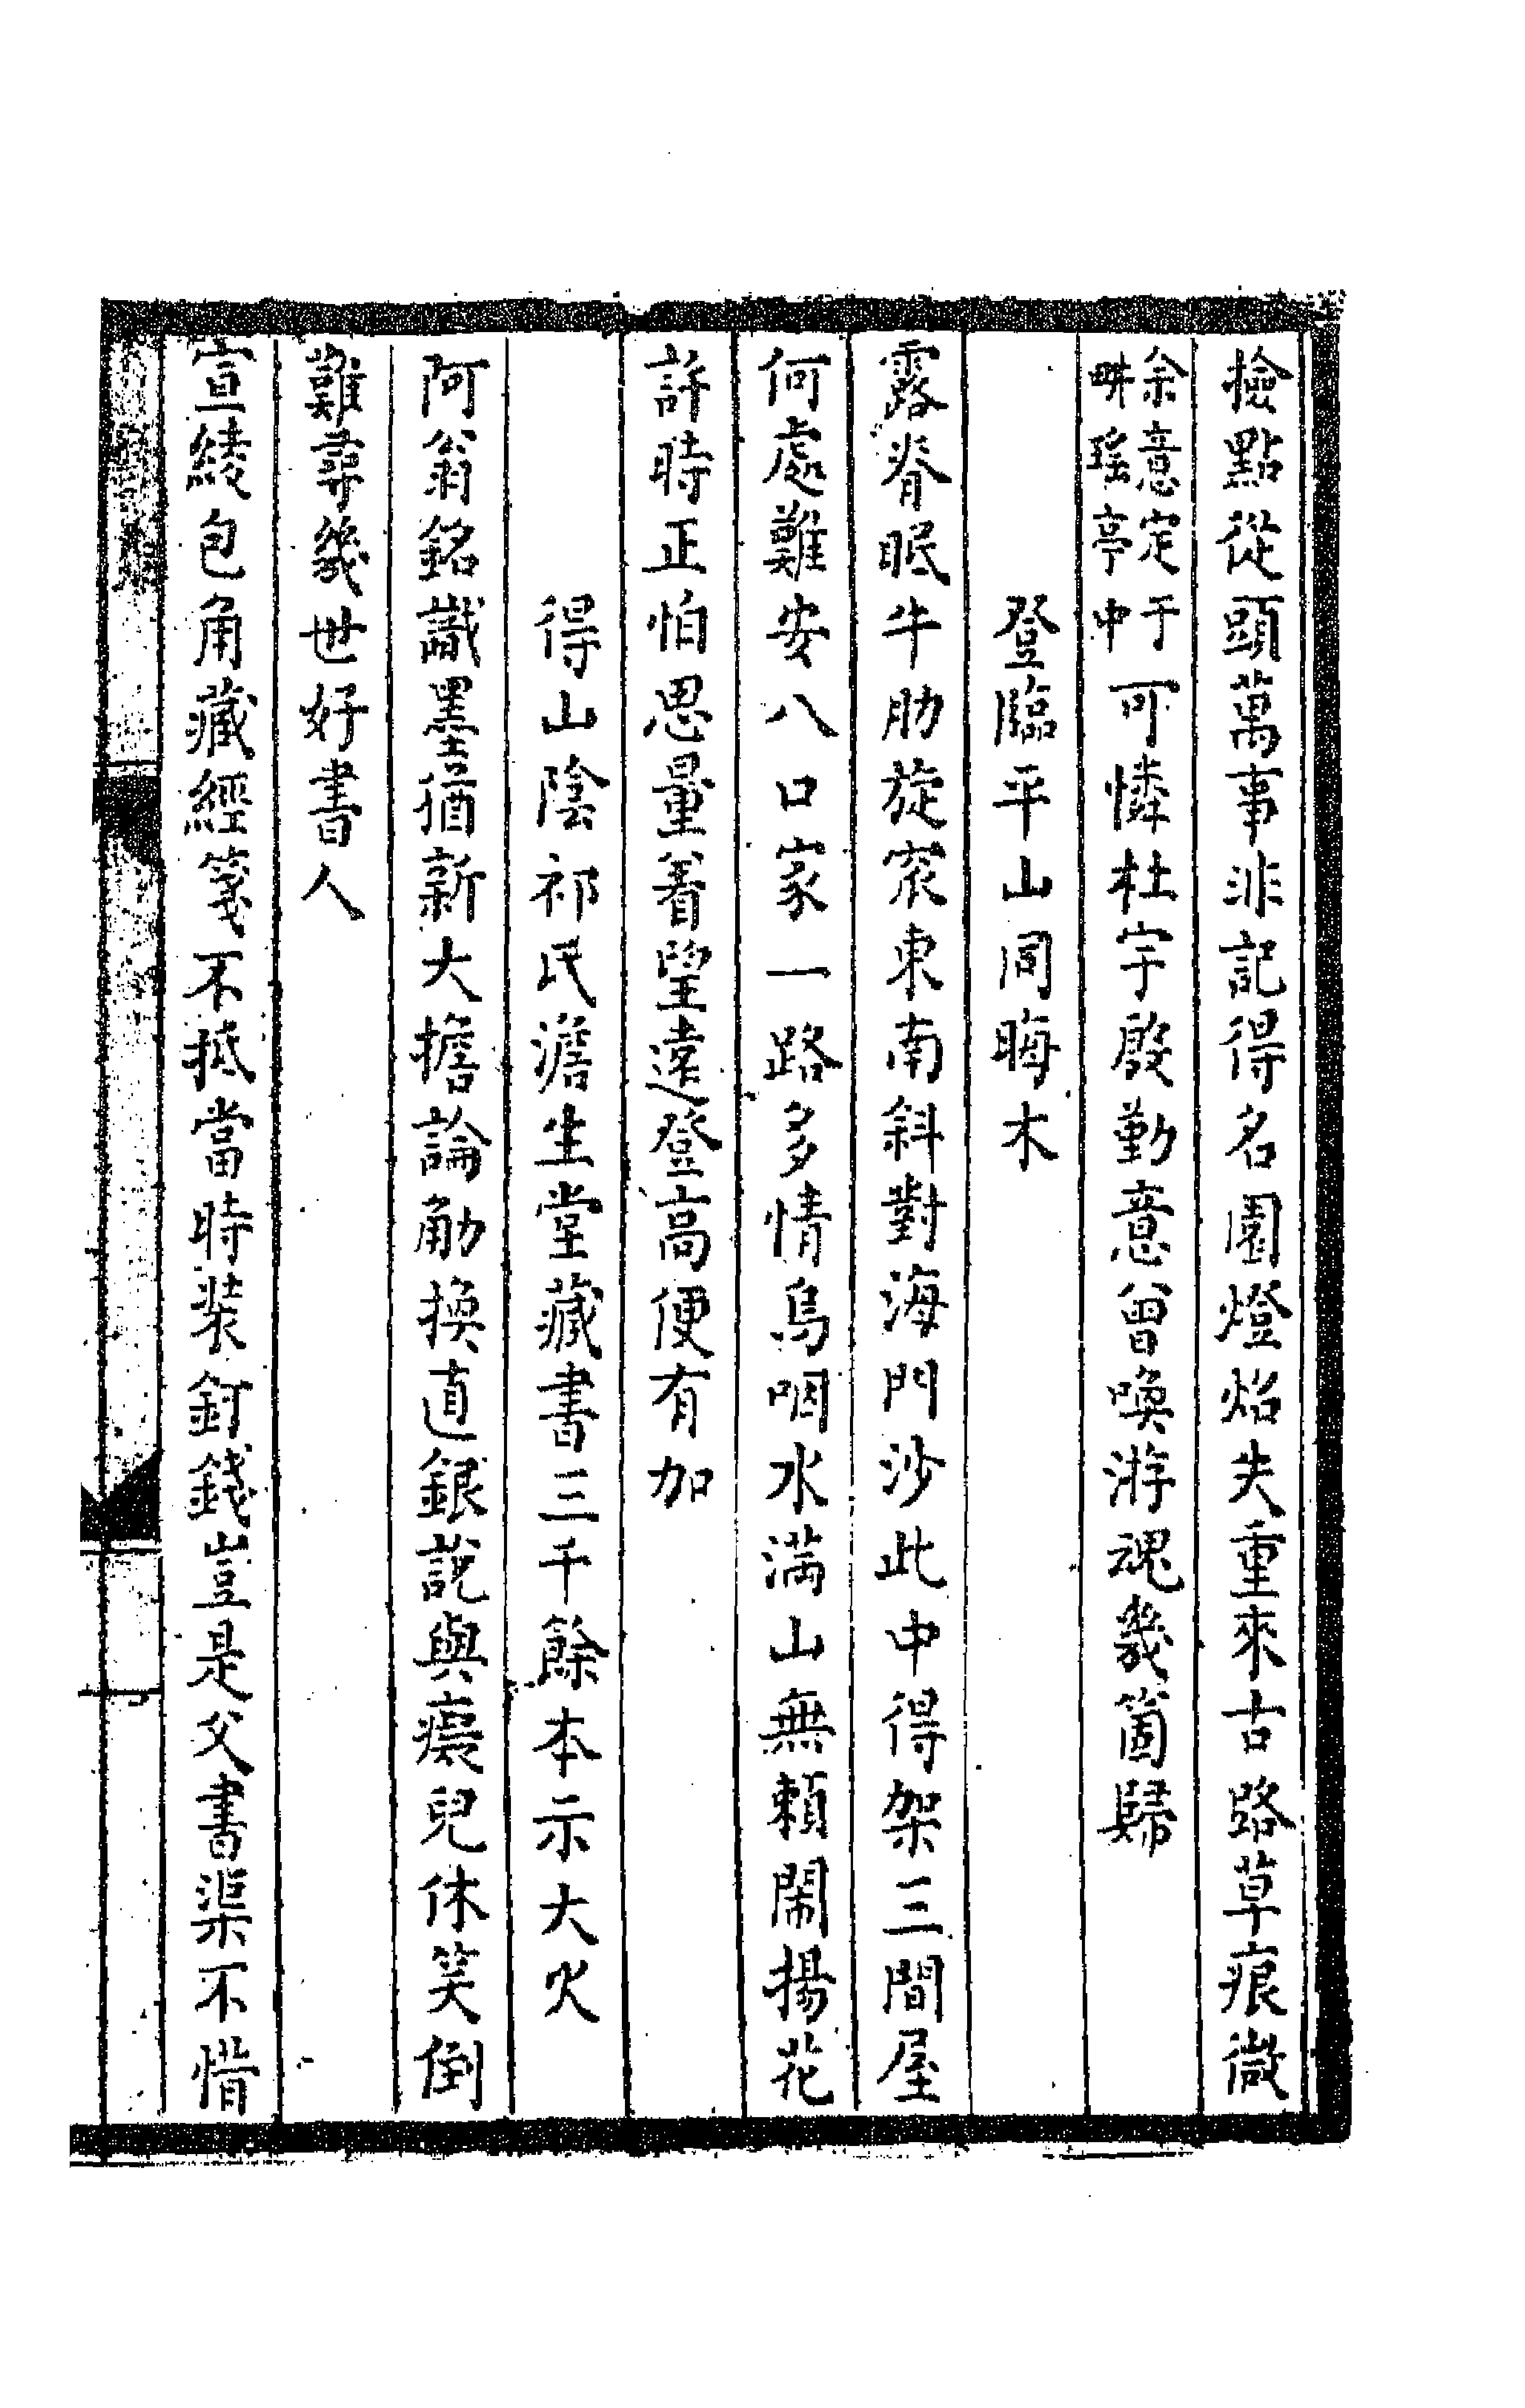 撿點從頭萬事非記得名園燈焰失重來古路草痕微
余意定于
畊瑤亭中可憐杜宇殷勤意曾喚游魂幾箇歸
登臨平山同晦木
露脊眠牛肋旋㝮東南斜對海門沙此中得架三間屋
何處難安八口家一路多情烏咽水滿山無賴鬧揚花
許時正怕思量着望遠登高便有加
得山陰祁氏澹生堂藏書三千餘本示大火
阿翁銘識墨猶新大擔論觔換直銀說與癡兒休笑倒
難尋幾世好書人
宣綾包角藏經箋不抵當時裝釘錢豈是父書渠不惜